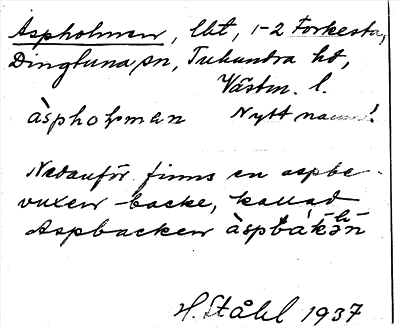 Aspholmen, lht, 1-2 Forkesta,
Dingtuna sn, Tuhundra hd,
Västm. l.
àspholman Nytt namn!
Nedanför finns en aspbe-
vuxen backe, kallad
Aspbacken àspbákən
H. Ståhl 1937